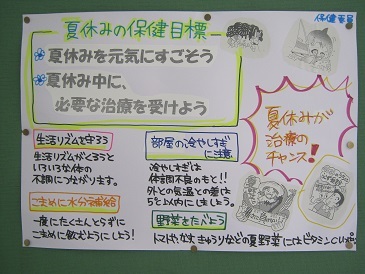 夏休みの保健目標
保健委員
夏休みを元気にすごそう
夏休み中に、
必要な治療を受けよう
夏休みが
治療の
チャンス!
生活リズムを守ろう
生活リズムがくるうと
いろいろな体の
不調につながります。
部屋の冷やしすぎ
に注意
冷やしすぎは
体調不良のもと!!
外との気温との差は
5℃以内にしましょう
こまめに水分補給
一度にたくさんとらずに
こまめに飲むようにしよう!
野菜をたべよう
トマトやなす、きゅうりなどの夏野菜にはビタミンCいっぱい